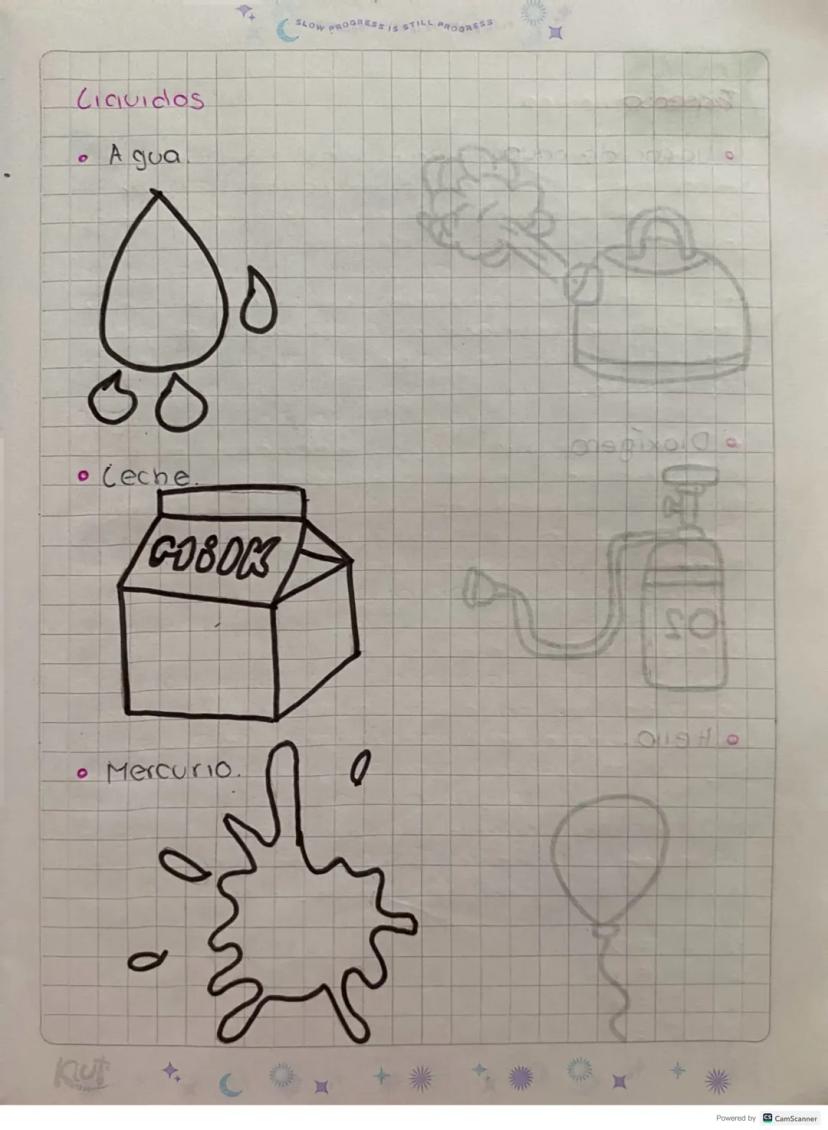 SLOW PROGRESS IS STILL PROGRESS
Liquidos
• Agua.
• Leche.
• Mercurio.
Kiut
Powered by CS CamScanner